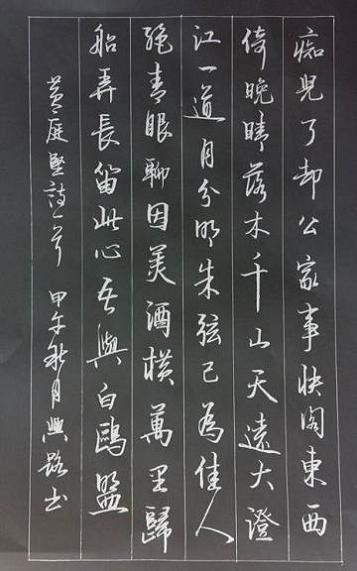 痴児了却公家事快阁東西
倚晚晴落木千山天遠大澄
江一道月分明朱弦已為佳人
绝青眼聊因美酒横萬里歸
船弄長笛此心吾與白鷗盟
黄庭堅詩一首 甲午秋月興路书